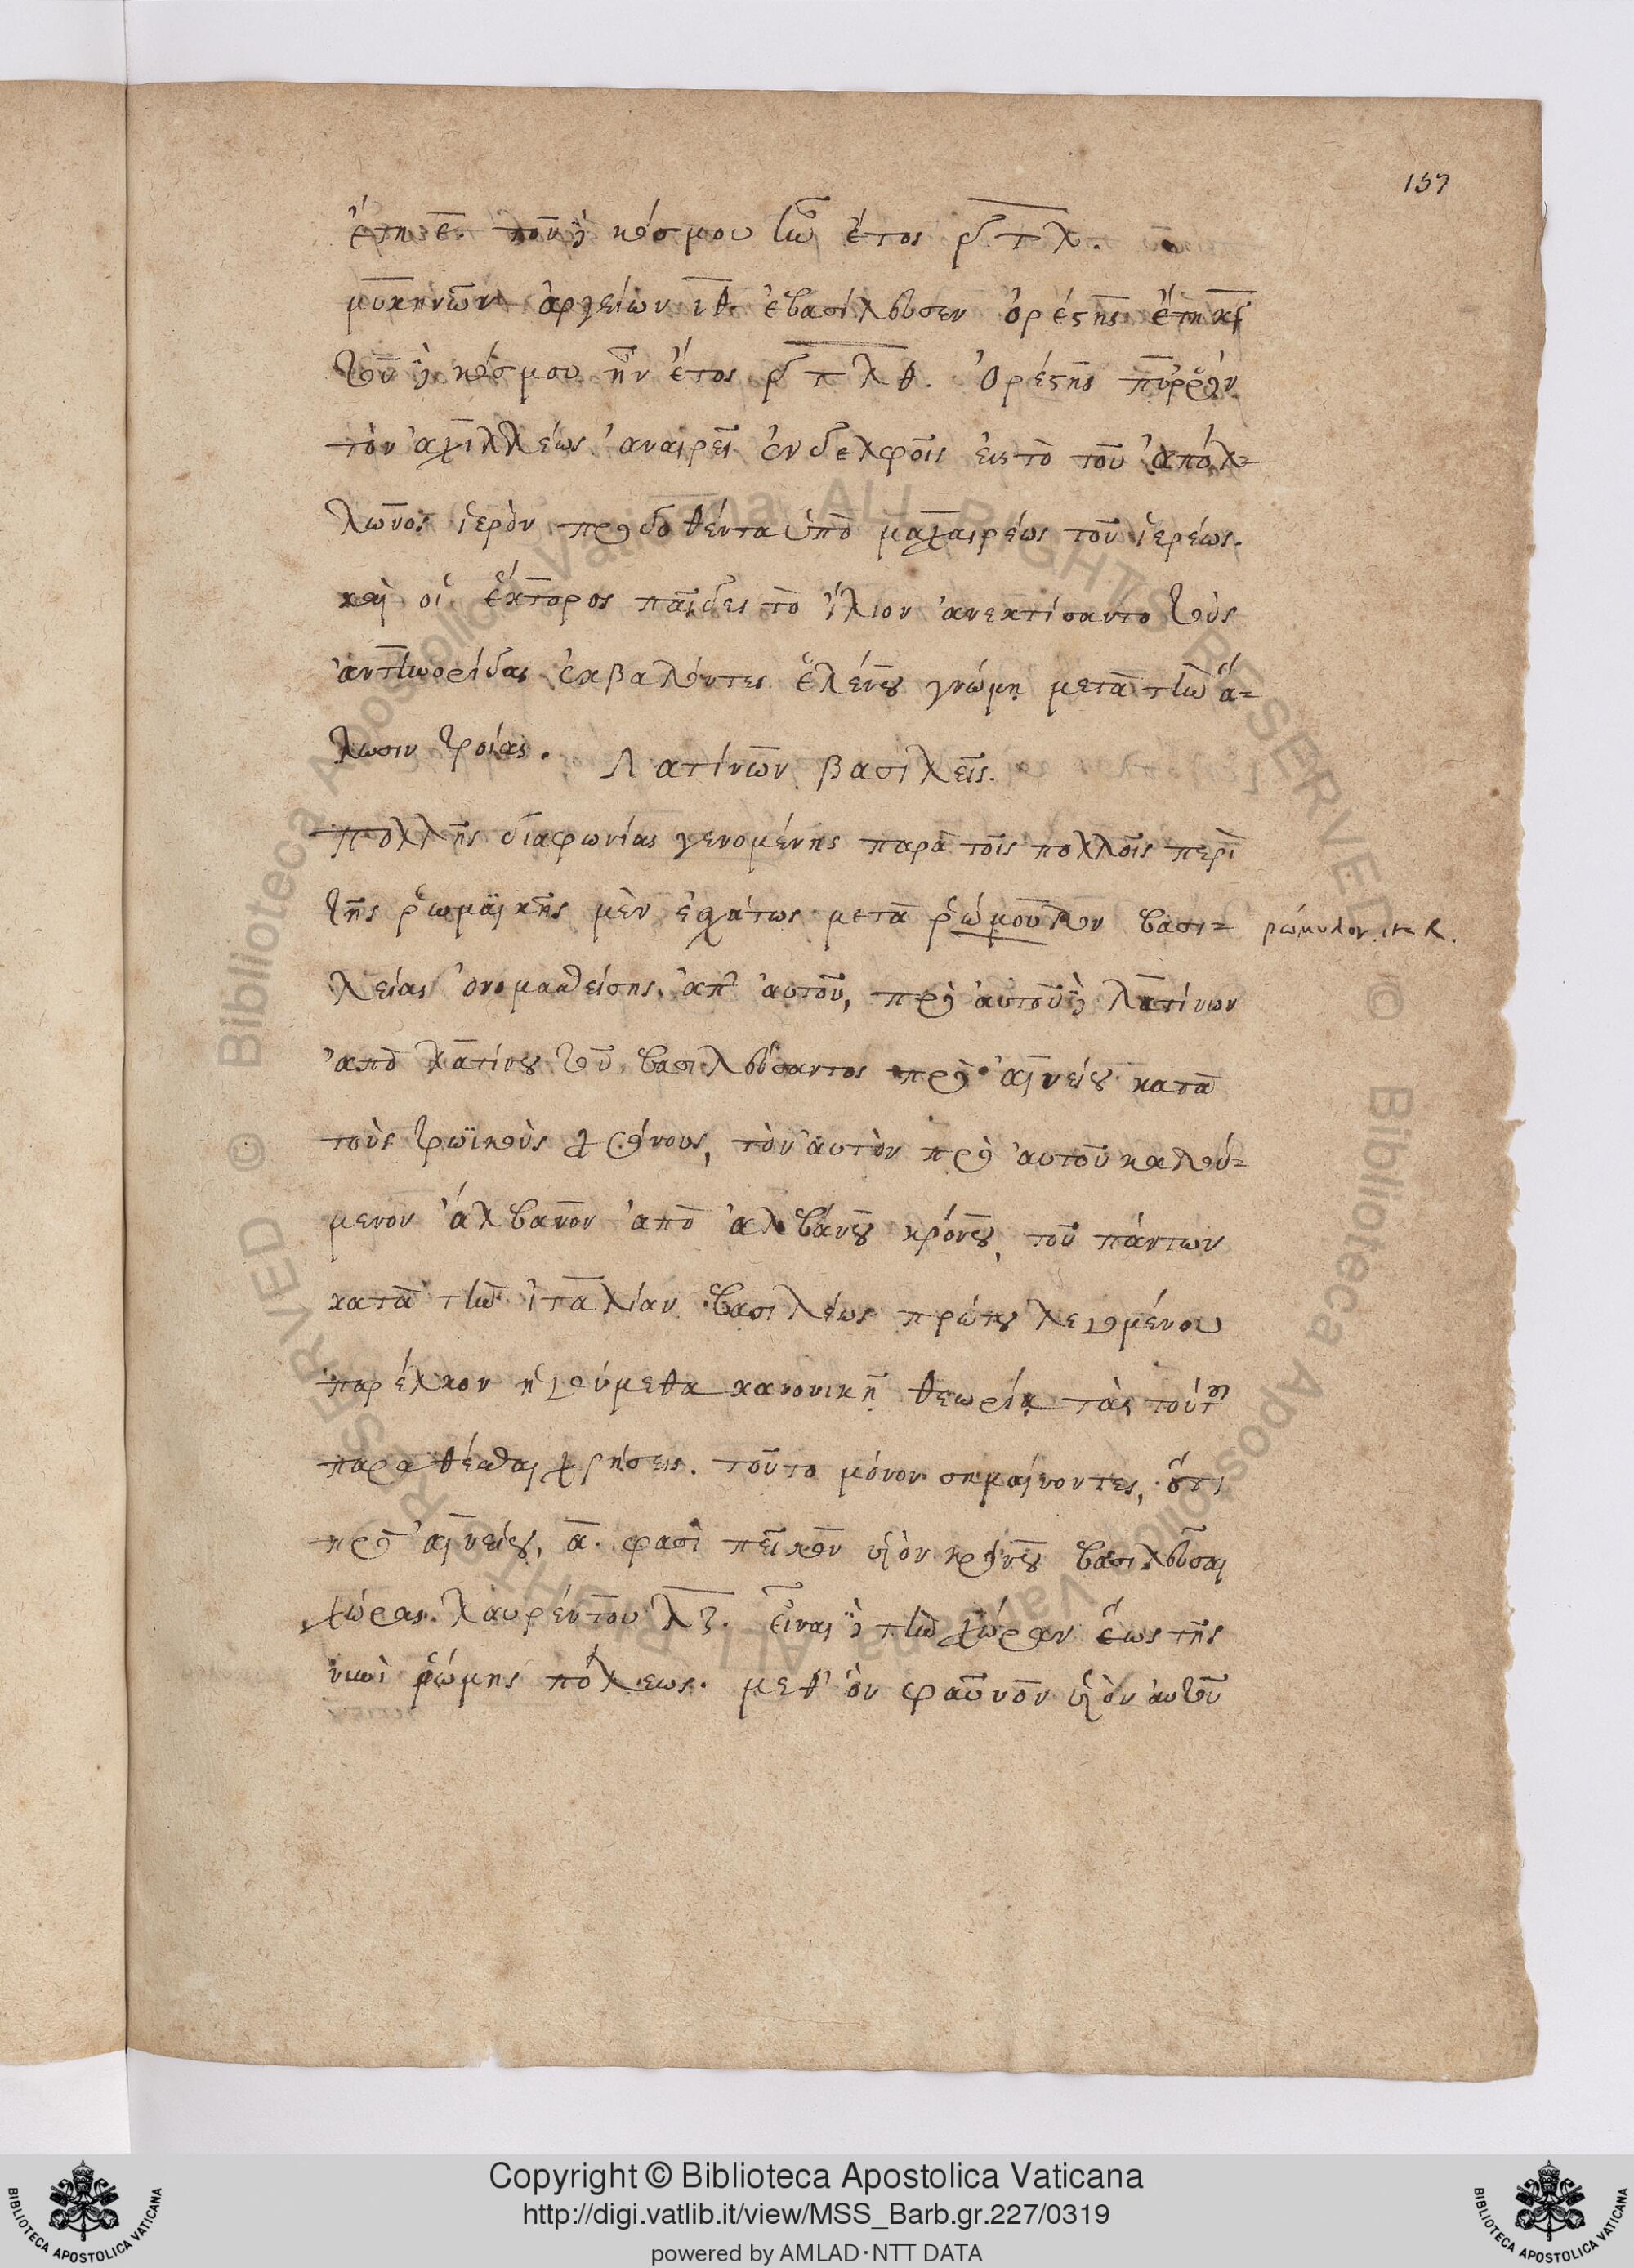 157
ἔτη ε̅. τοῦ δὲ κόσμου ἦν ἔτος δ̅τ̅λ̅.
μυκηνῶν ἀργείων ι̅θ̅ ἐβασίλευσεν ὀρέστης ἔτη κ̅γ̅
τοῦ δὲ κόσμου ἦν ἔτος δ̅τ̅λ̅θ̅. Ὀρέστης πύρρον
τὸν ἀχιλλέως ἀναιρεῖ ἐν δελφοῖς εἰς τὸ τοῦ ἀπόλ=
λωνος ἱερὸν προδοθέντα ὑπὸ μαχαιρέως τοῦ ἱερέως.
καὶ οἱ ἕκτορος παῖδες τὸ ἴλιον ἀνεκτίσαντο τοὺς
ἀντηνορίδας ἐκβαλόντες ἑλένου γνώμῃ μετὰ τὴν ἅ=
λωσιν τροίας. Λατίνων βασιλεῖς.
πολλῆς διαφωνίας γενομένης παρὰ τοῖς πολλοῖς περὶ
τῆς ῥωμαϊκῆς μὲν ἐσχάτως μετὰ ῥώμουλον βασι=
ρώμυλον
λείας ὀνομασθείσης ἀπ' αὐτοῦ, πρὸ αὐτοῦ δὲ λατίνων
ἀπὸ λατίνου τοῦ βασιλεύσαντος πρὸ αἰνείου κατὰ
τοὺς τρωϊκοὺς χρόνους, τὸν αὐτὸν πρὸ αὐτοῦ καλού=
μενον ἀλβανὸν ἀπὸ ἀλβάνου κρόνου, τοῦ πάντων
κατὰ τὴν ἰταλίαν βασιλέως πρώτου λεγομένου
παρέλκον ἡγούμεθα κανονικῇ θεωρίᾳ τὰς τούτων
παραθέσθαι χρήσεις. τοῦτο μόνον σημαίνοντες, ὅτι
πρὸ αἰνείου, α̅. φασὶ πεῖκον υἱὸν κρόνου βασιλεῦσαι
χώρας λαυρέντου λ̅ζ̅. εἶναι δὲ τὴν χώραν ἕως τῆς
νυνὶ ῥώμης πόλεως. μεθ' ὃν φαῦνον υἱὸν αὐτοῦ
Copyright © Biblioteca Apostolica Vaticana
http://digi.vatlib.it/view/MSS_Barb.gr.227/0319
powered by AMLAD·NTT DATA
BIBLIOTECA APOSTOLICA VATICANA
BIBLIOTECA APOSTOLICA VATICANA
© Biblioteca Apostolica Vaticana ALL RIGHTS RESERVED
© Biblioteca Apostolica Vaticana ALL RIGHTS RESERVED